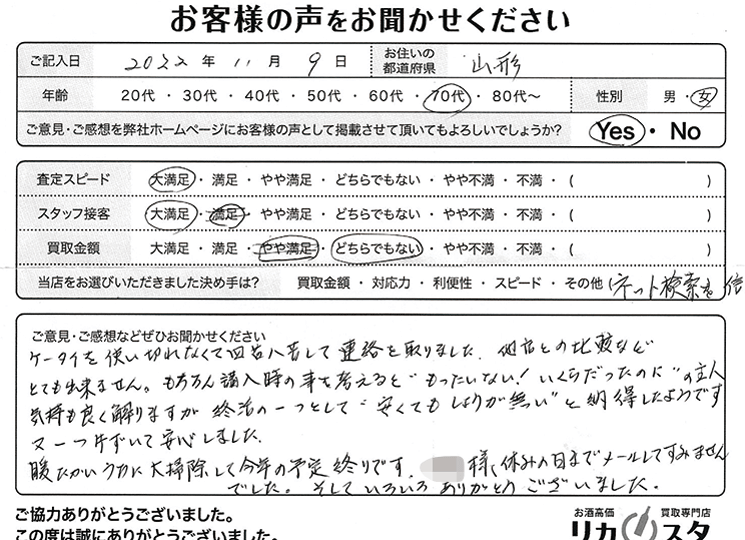 お客様の声をお聞かせください
ご記入日 2022 年 11 月 9 日 お住いの都道府県 山形
年齢 20代 ・ 30代 ・ 40代 ・ 50代 ・ 60代 ・ 70代 ・ 80代〜 性別 男 ・ 女
ご意見・ご感想を弊社ホームページにお客様の声として掲載させて頂いてもよろしいでしょうか? Yes ・ No
査定スピード 大満足 ・ 満足 ・ やや満足 ・ どちらでもない ・ やや不満 ・ 不満 ・ ( )
スタッフ接客 大満足 ・ 満足 ・ やや満足 ・ どちらでもない ・ やや不満 ・ 不満 ・ ( )
買取金額 大満足 ・ 満足 ・ やや満足 ・ どちらでもない ・ やや不満 ・ 不満 ・ ( )
当店をお選びいただきました決め手は? 買取金額 ・ 対応力 ・ 利便性 ・ スピード ・ その他 (ネット検索を信
ご意見・ご感想などぜひお聞かせください
ケータイを使い切れなくて四苦八苦して連絡を取りました. 他店との比較など
とても出来ません。もちろん購入時の事を考えると"もったいない!いくらだったのに"の主人
気持も良く解りますが 終活の一つとして"安くてもしょうが無い"と納得したようです
又一つ片ずいて安心しました.
暖たかいうちに大掃除して今年の予定終りです. 様、休みの日までメールしてすみません
でした。そしていろいろありがとうございました.
ご協力ありがとうございました。
この度は誠にありがとうございました。
お酒高価 買取専門店
リカスタ